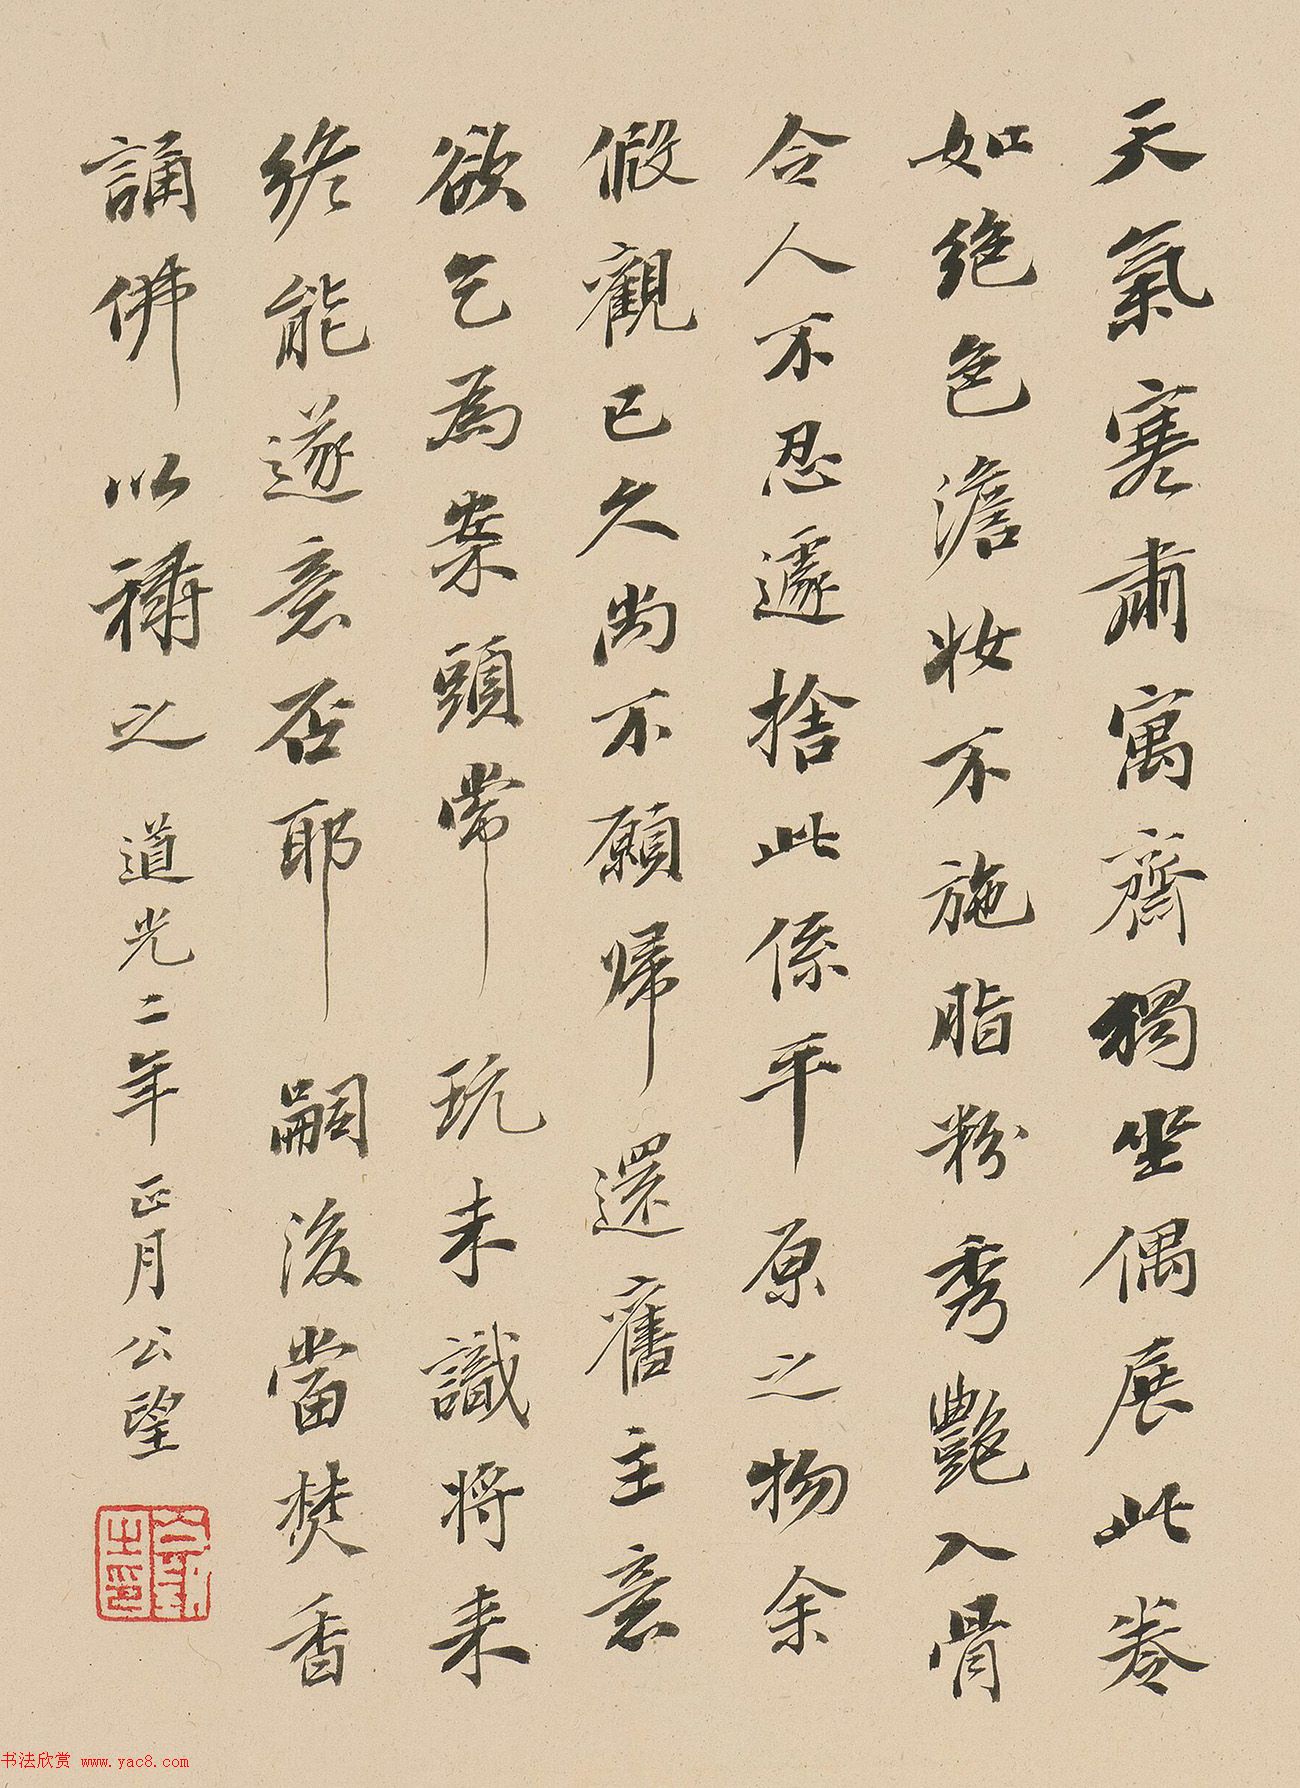 天氣寒肅寓齋獨坐偶展此卷
如絕色澹妝不施脂粉秀艷入骨
令人不忍遽捨此係平原之物余
假觀已久尚不願歸還舊主意
欲乞為案頭常玩未識將來
終能遂意否耶嗣後當焚香
誦佛以禱之道光二年正月公望
书法欣赏 www.yac8.com